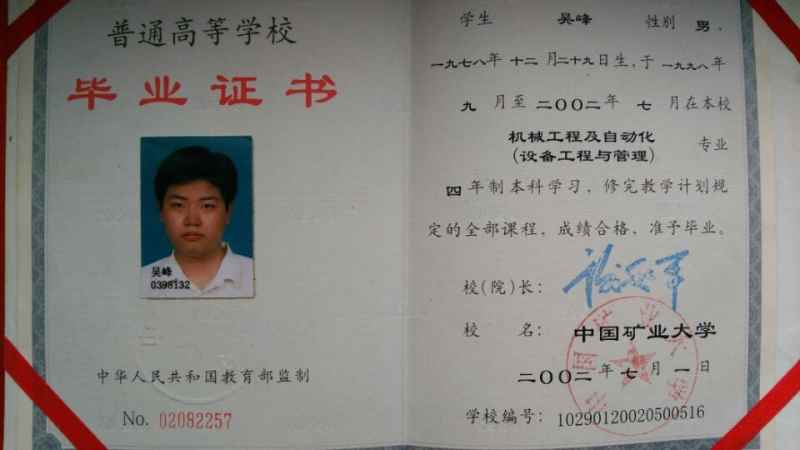 普通高等学校
毕业证书
吴峰
0398132
中华人民共和国教育部监制
No. 02082257
学生 吴峰 性别 男，
一九七八年 十二 月二十九日生，于 一九九八年
九 月至 二〇〇二年 七 月在本校
机械工程及自动化
(设备工程与管理) 专业
四 年制本科学习，修完教学计划规
定的全部课程，成绩合格，准予毕业。
校(院)长：
校 名：中国矿业大学
二〇〇二 年 七 月 一 日
学校编号：10290120020500516